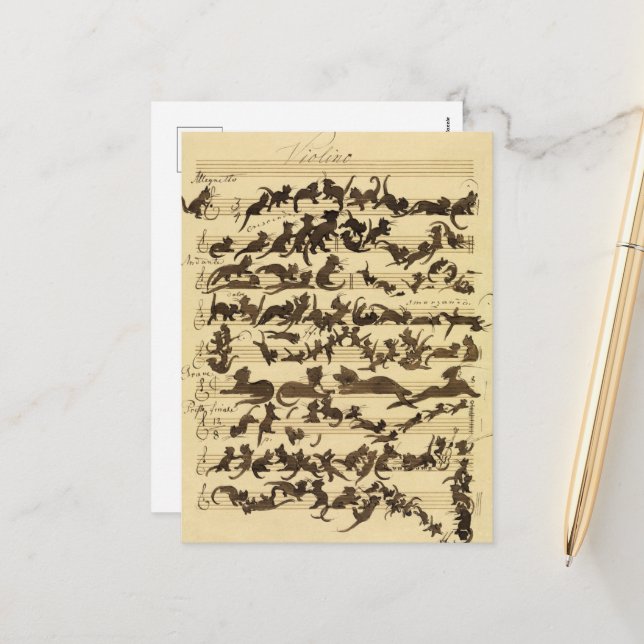 Violino
Allegretto
3
4
crescendo
Andante
smorzando.
Grave
Presto finale
12
8
p.